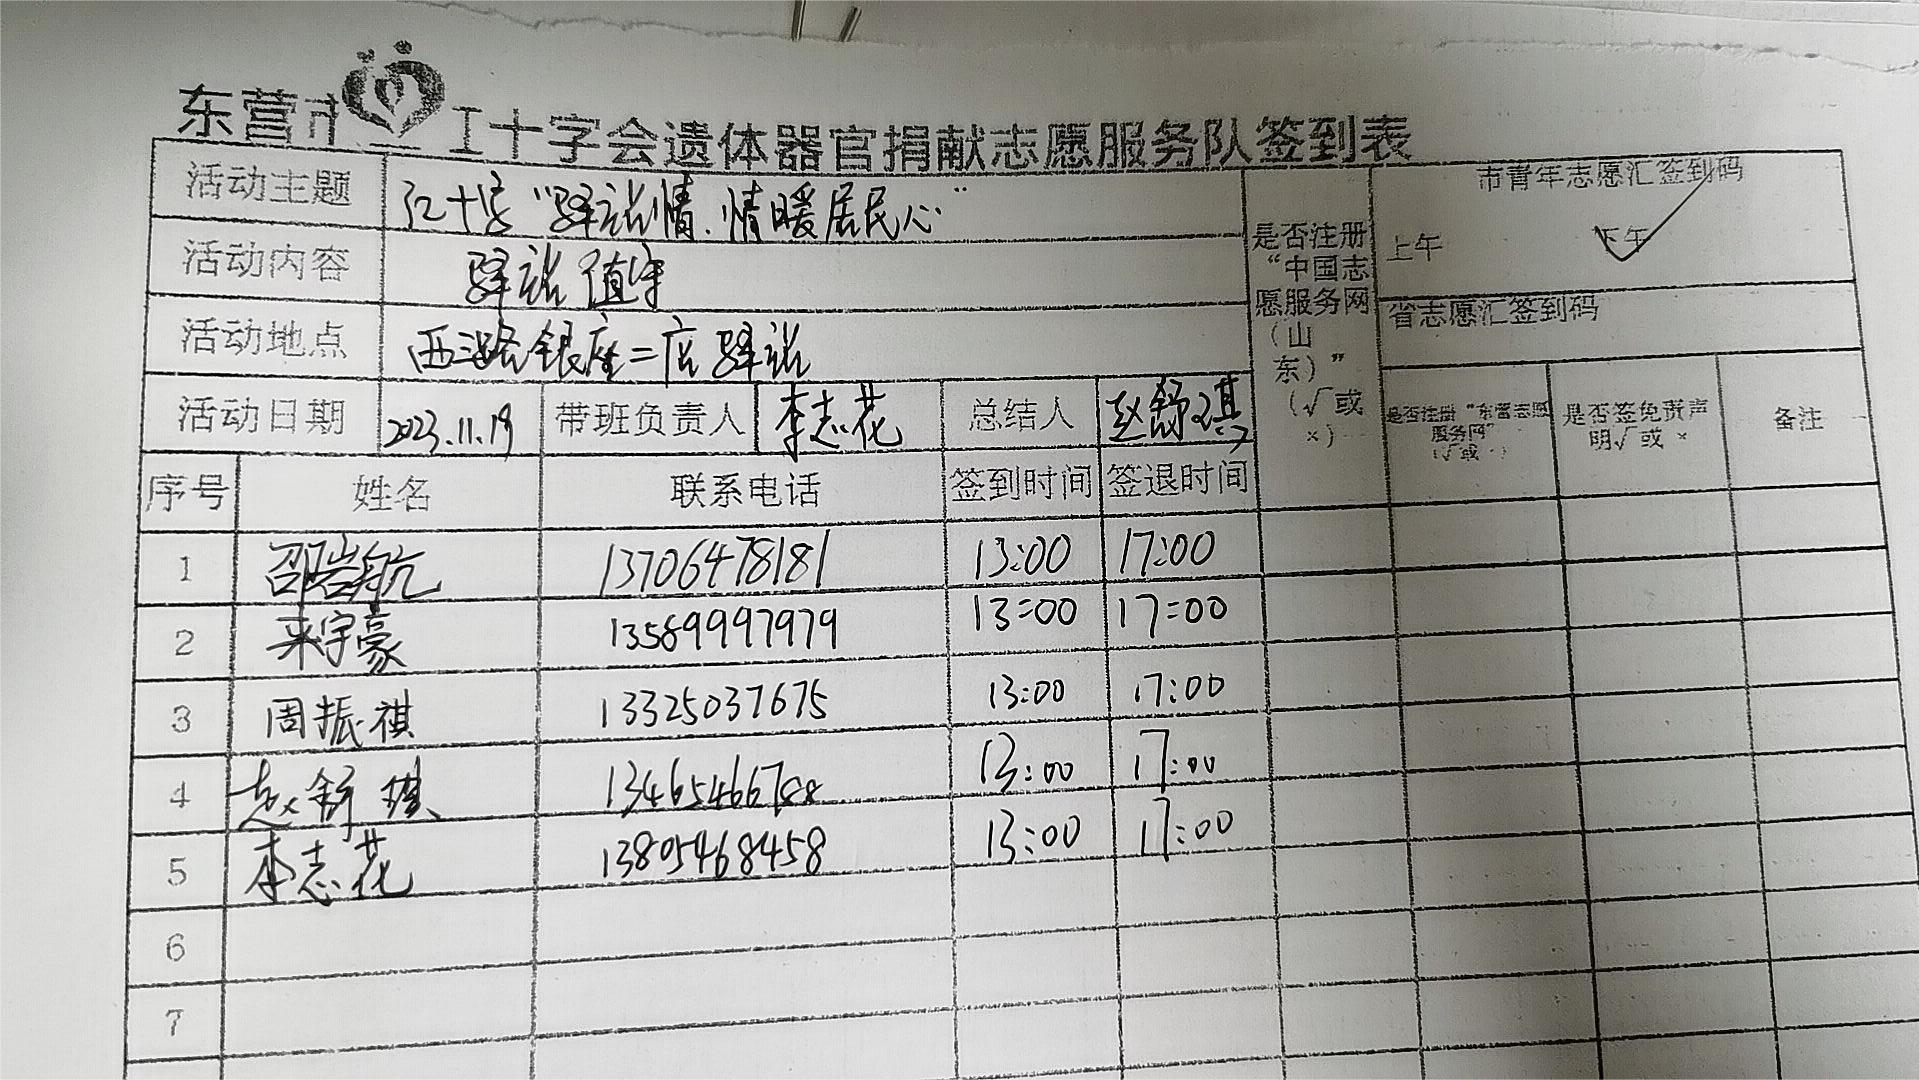 东营市红十字会遗体器官捐献志愿服务队签到表
活动主题 红十字“驿站情.情暖居民心”
活动内容 驿站值守
活动地点 西三路银座二店驿站
活动日期 2023.11.19 带班负责人 李志花 总结人 赵舒琪
是否注册“中国志愿服务网（山东）”（√或×）
市青年志愿汇签到码
上午 下午 √
省志愿汇签到码
是否注册“东营志愿服务网”（√或×） 是否签免责声明√或× 备注
序号 姓名 联系电话 签到时间 签退时间
1 邵岩航 13706478181 13:00 17:00
2 来宇豪 13589997979 13:00 17:00
3 周振祺 13325037675 13:00 17:00
4 赵舒琪 13465466788 13:00 17:00
5 李志花 13805468458 13:00 17:00
6
7